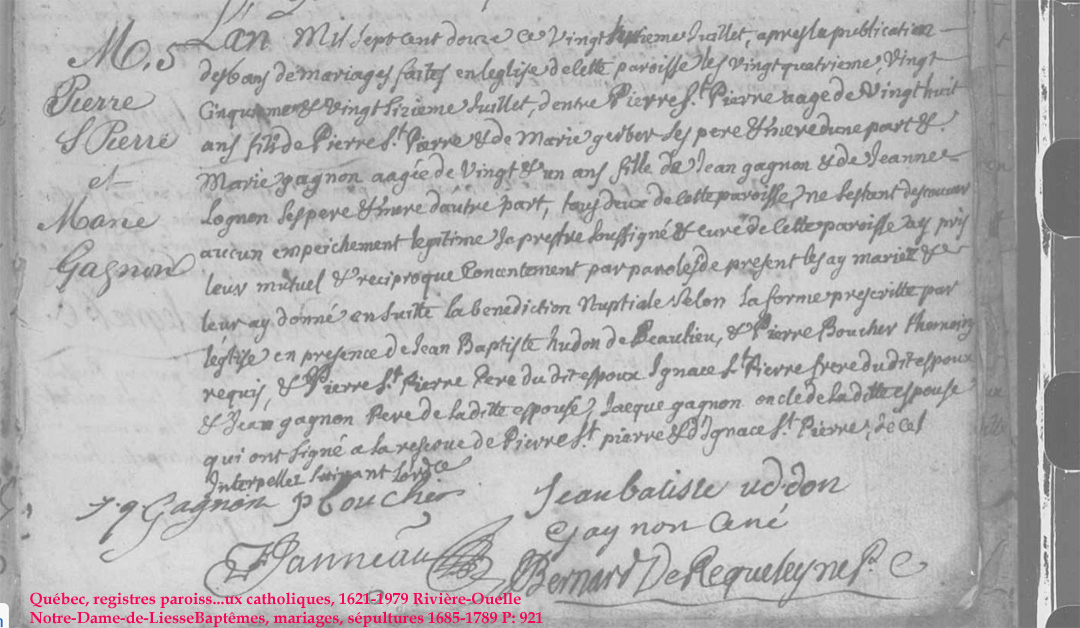 M. 5
Pierre
S Pierre
et
Marie
Gagnon
Lan Mil sept cent douze ce vingt septieme Juillet, apres la publication
des bans de mariages faites en leglise de cette paroisse les vingt quatrieme, vingt
cinquieme & vingt sixieme Juillet, dentre Pierre St. Pierre aagé de vingt huit
ans fils de Pierre St. Pierre & de Marie gerbor ses pere & mere dune part &
Marie gagnon aagée de vingt & un ans fille de Jean gagnon & de Jeanne
Lognon ses pere & mere d'autre part, tous deux de cette paroisse, ne sestant descouvert
aucun empeichement legitime Je prestre soussigné & curé de cette paroisse ay pris
leur mutuel & reciproque consentement par paroles de present les ay mariez &
leur ay donné ensuitte la benediction Nuptiale selon la forme prescritte par
léglise en presence de Jean Baptiste hudon de Beaulieu, & Pierre Boucher themoins
requis, & Pierre St. Pierre Pere du dit espoux Ignace St. Pierre frere du dit espoux
& Jean gagnon Pere de la ditte espouse, Jacque gagnon oncle de la ditte espouse
qui ont signé a la reserve de Pierre St. pierre & d'Ignace St. Pierre, de ce
Interpellez suivant lordce
J q Gagnon P boucher Jean batiste uddon
Gaynon
Janneau Bernard De Requeleyne P. C
Québec, registres paroiss...ux catholiques, 1621-1979 Rivière-Ouelle
Notre-Dame-de-LiesseBaptêmes, mariages, sépultures 1685-1789 P: 921